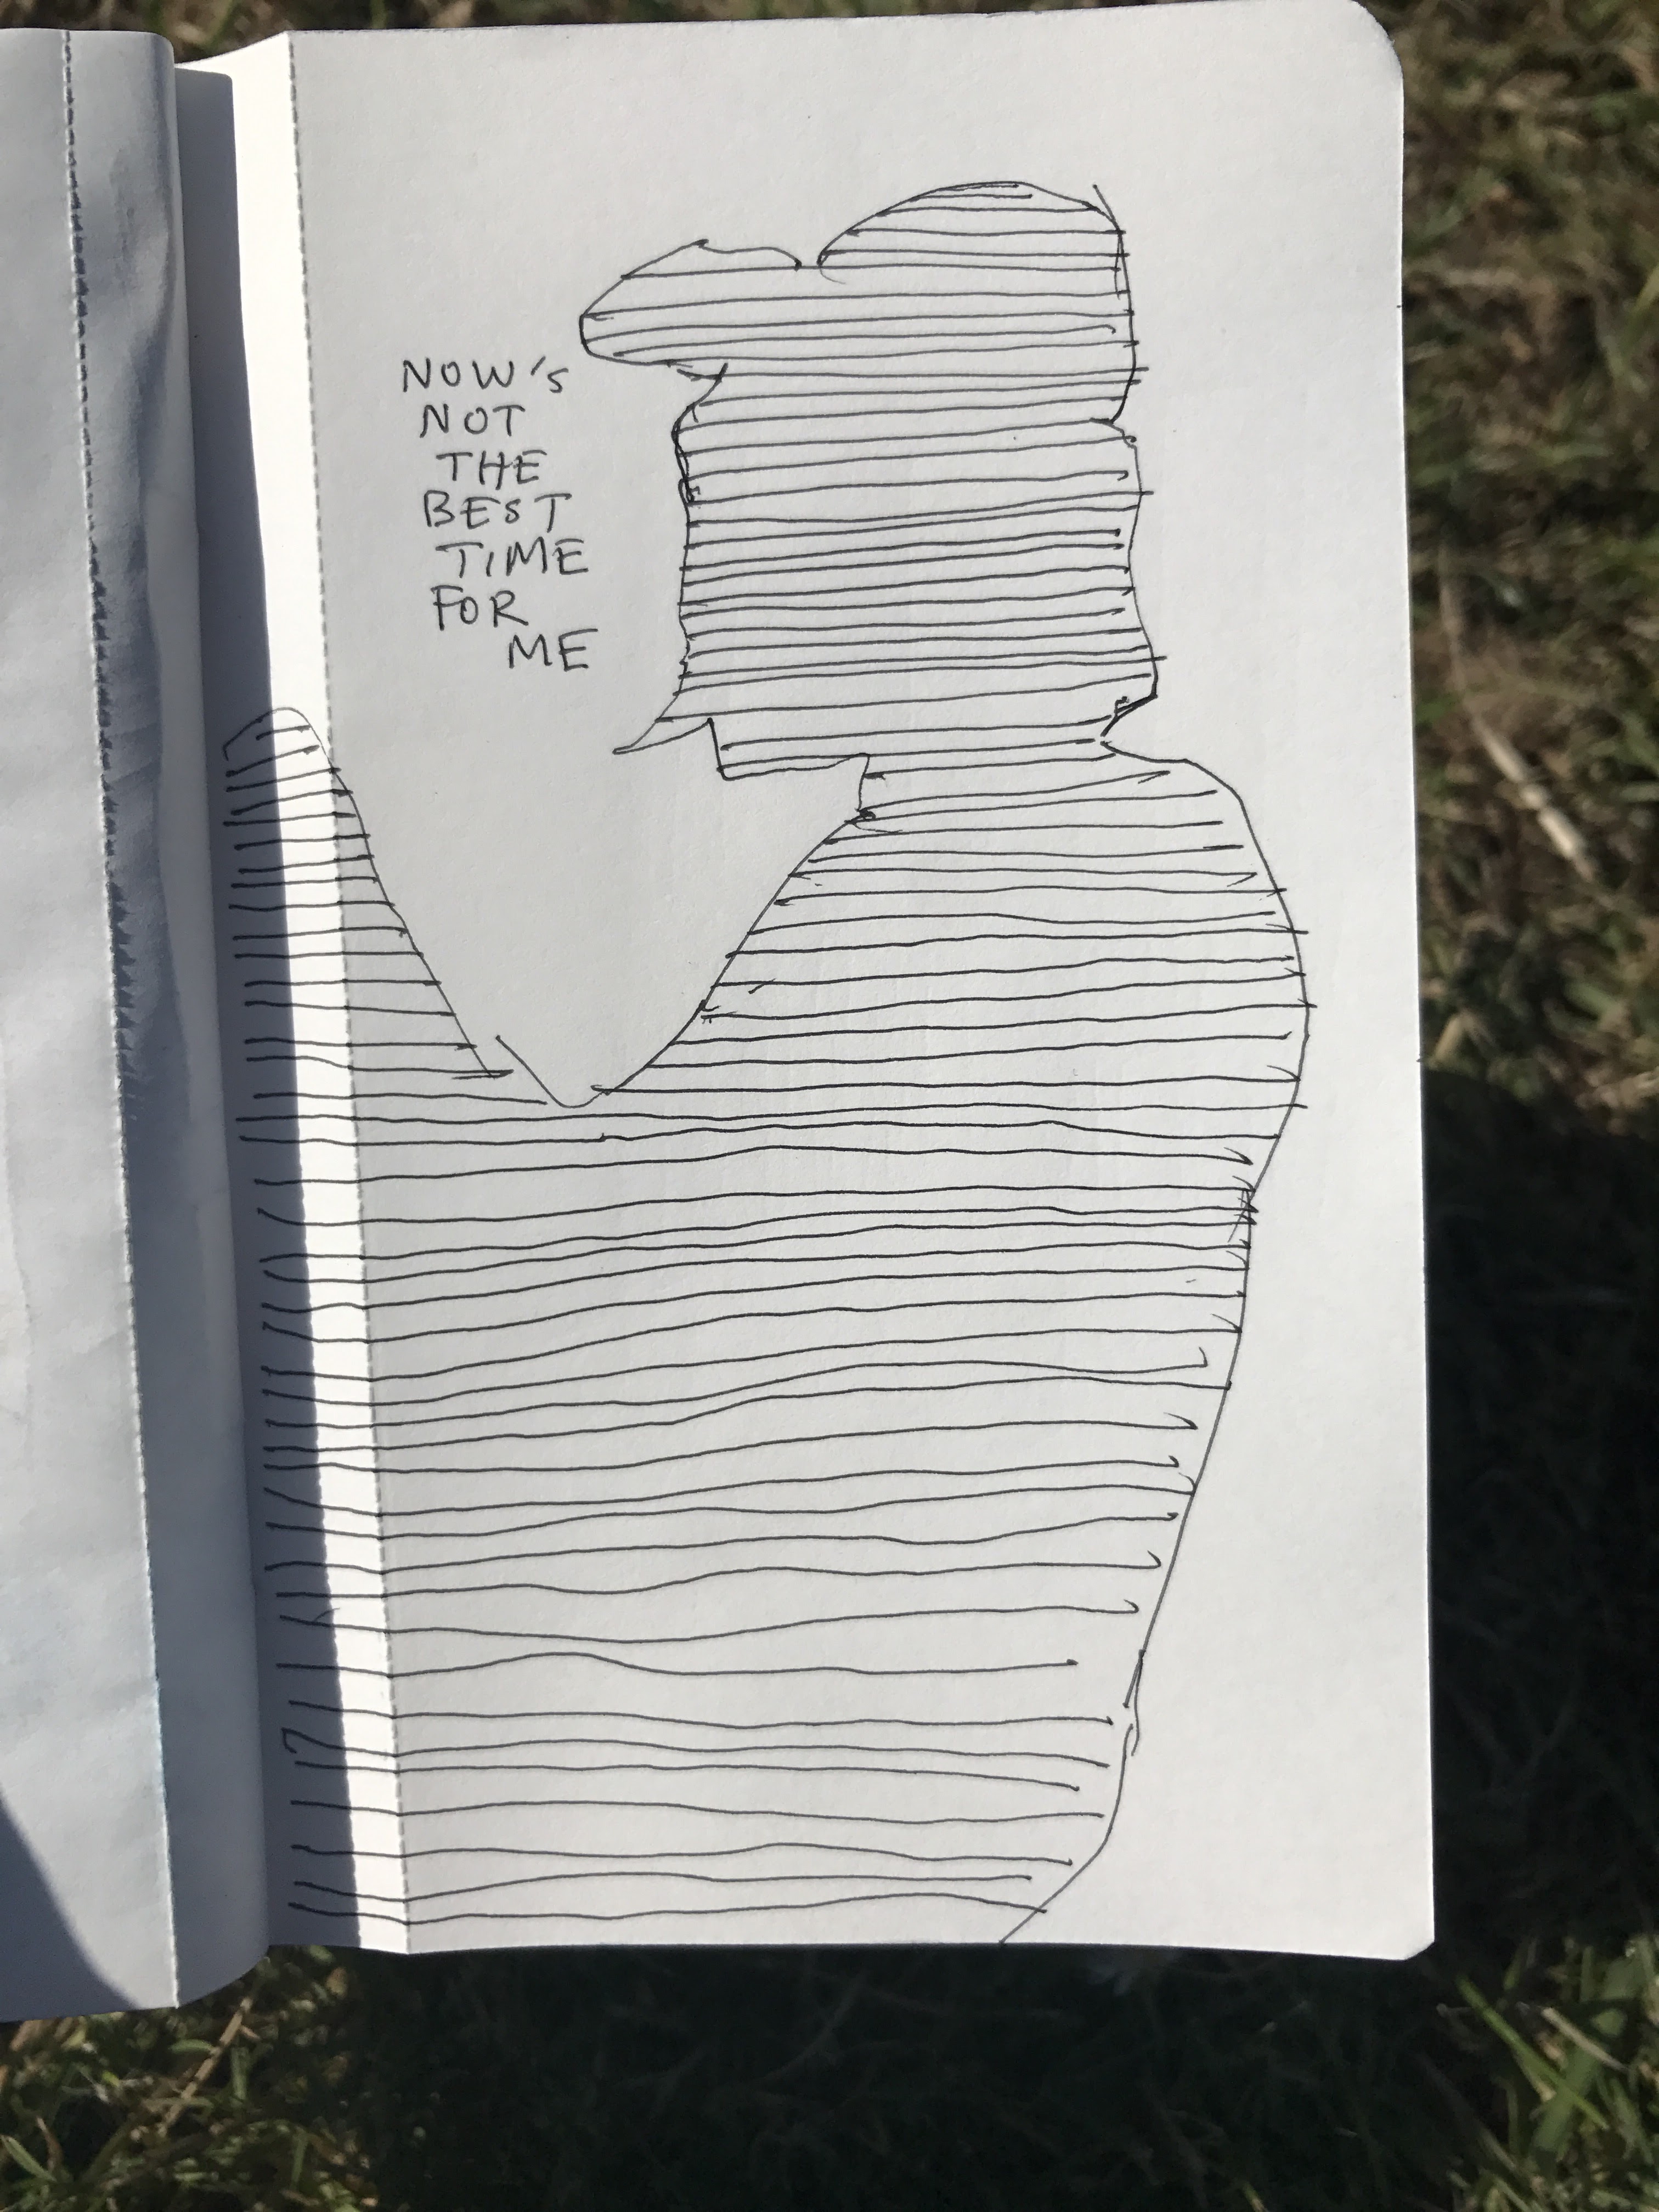 NOW's
NOT
THE
BEST
TIME
FOR
ME